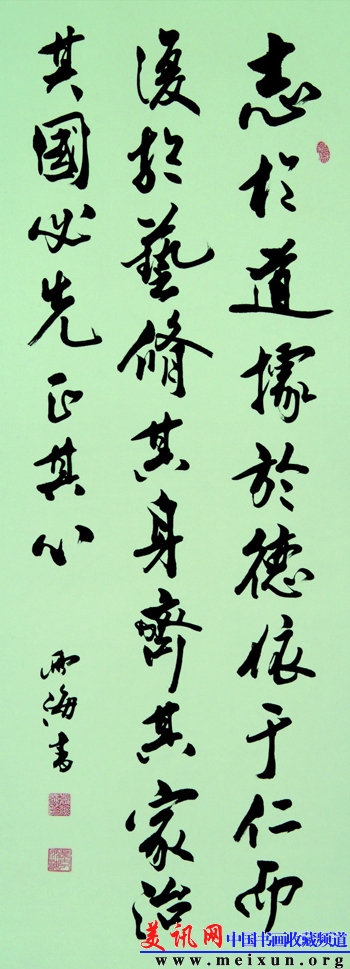 志於道據於德依于仁而
復於藝脩其身齊其家治
其國必先正其心
雨海書
美讯网 中国书画收藏频道
www.meixun.org